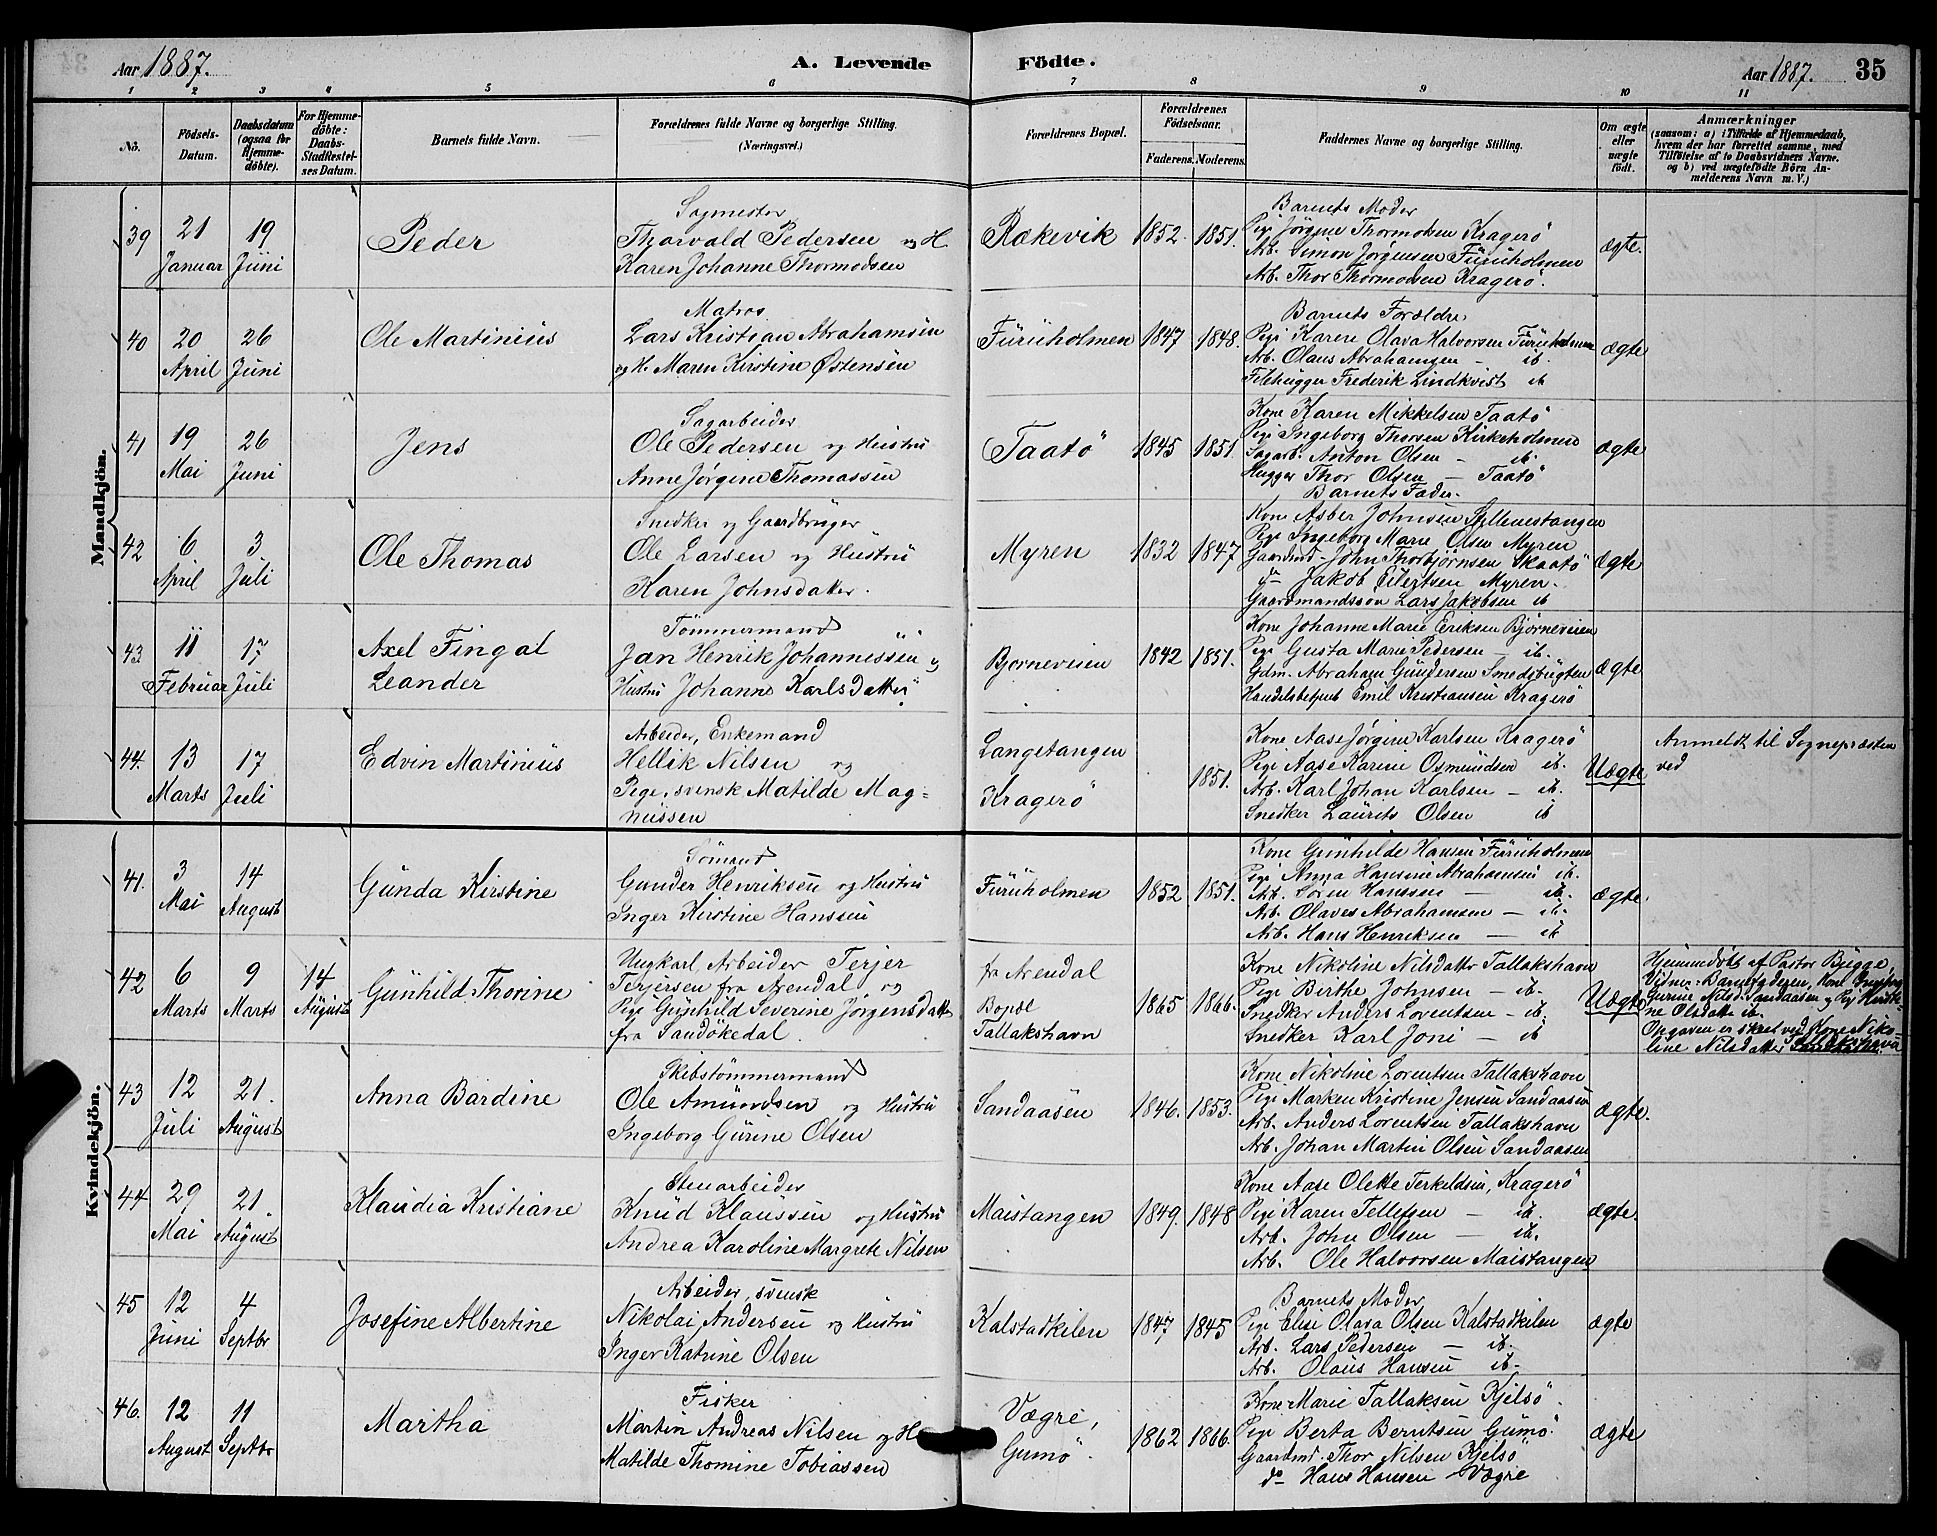 Aar 1887. A. Levende Födte. Aar 1887. 35
1 2 3 4 5 6 7 8 9 10 11
No. Födsels-Datum. Daabsdatum (ogsaa for Hjemmedöbte). For Hjemmedöbte: Daabs-Stadfæstelses Datum. Barnets fulde Navn. Forældrenes fulde Navne og borgerlige Stilling. (Næringsvei.) Forældrenes Bopæl. Forældrenes Födselsaar. Faderens. Moderens. Faddernes Navne og borgerlige Stilling. Om ægte eller uægte födt. Anmærkninger (saasom: a) i Tilfælde af Hjemmedaab, hvem der har forrettet samme, med Tilföielse af to Daabsvidners Navne, og b) ved uægtefödte Börn Anmelderens Navn m. V.)
Mandkjön.
39 21 Januar 19 Juni
Peder
Sagmester
Thorvald Pedersen og H.
Karen Johanne Thormodsen
Rækevik 1852. 1851.
Barnets Moder
Pige Jørgine Thormodsen Kragerö
Arb. Simon Jørgensen Furuholmen
Arb. Thor Thormodsen Kragerö.
ægte.
40 20 April 26 Juni
Ole Martinius
Matros
Lars Kristian Abrahamsen
og H. Maren Kirstine Østensen
Furuholmen 1847 1848.
Barnets Forældre
Pige Karen Olava Halvorsen Furuholmen
Arb. Olaus Abrahamsen - ib.
Filehugger Frederik Lindkvist ib
ægte
41 19 Mai 26 Juni
Jens
Sagarbeider
Ole Pedersen og Hustru
Anne Jørgine Thomassen
Taatö 1845 1851.
Kone Karen Mikkelsen Taatö
Pige Ingeborg Thorsen Kirkeholmen
Sagarb. Anton Olsen - ib.
Hugger Thor Olsen - Taatö
Barnets Fader.
ægte
42 6 April 3 Juli
Ole Thomas
Snedker og Gaardbruger
Ole Larsen og Hustru
Karen Johnsdatter.
Myren 1832 1847
Kone Asber Johnsen
Pige Ingeborg Marie Olsen Myren
Gaardmd. John Thorbjørnsen Skaatö
do Jakob Eilertsen Myren.
Gaardmandssön Lars Jakobsen ib
ægte
43 11 Februar 17 Juli
Axel Fingal
Leander
Tömmermand
Jan Henrik Johannissen og
Hustru Johanne Karlsdatter
Bjørneveien 1842 1851.
Kone Johanne Marie Eriksen Bjørneveien
Pige Gusta Marie Pedersen - ib.
Gdm. Abraham Gundersen Smedsbugten
Handelsbetjent Emil Kristiansen Kragerö
ægte
44. 13 Marts 17 Juli
Edvin Martinius
Arbeider, Enkemand
Hellik Nilsen og
Pige, svensk Matilde Mag=
nussen
Langetangen
Kragerö 1851.
Kone Aase Jørgine Karlsen Kragerö
Pige Aase Karine Osmundsen ib.
Arb. Karl Johan Karlsen - ib.
Snedker Laurits Olsen ib
Uægte
Anmeldt til Sognepræsten
ved
Kvindekjön.
41. 3 Mai 14 August
Gunda Kirstine
Sömand
Gunder Henriksen og Hustru
Inger Kirstine Hanssen
Furuholmen 1852 1851.
Kone Gunhilde Hansen Furuholmen
Pige Anna Hansine Abrahamsen ib.
Arb. Sören Hanssen - ib.
Arb. Olaves Abrahamsen - ib.
Arb. Hans Henriksen - ib
ægte.
42 6 Marts 9 Marts 14 August
Gunhild Thorine
Ungkarl, Arbeider Terjer
Terjersen fra Arendal og
Pige Gunhild Severine Jörgensdatter
fra Sandökedal.
fra Arendal
Bopæl
Tallakshavn 1865 1866.
Kone Nikoline Nilsdatter Tallakshavn
Pige Birthe Johnsen - ib.
Snedker Anders Lorentsen - ib.
Snedker Karl Joni - ib
Uægte
Hjemmedöbt af Pastor Bugge,
Vidner: Barnefaderen, Kone Ingeborg
Gurine Nilsd. Sandaasen og Pige Kirsti-
ne Olsdatter ib.
Opgaven er skret ved Kone Niko-
line Nilsdatter Tallakshavn
43 12 Juli 21. August
Anna Bardine
Skibstömmermand
Ole Amundsen og Hustru
Ingeborg Gurine Olsen
Sandaasen 1846. 1853.
Kone Nikoline Lorentsen Tallakshavn
Pige Marken Kristine Jensen Sandaasen
Arb. Anders Lorentsen Tallakshavn
Arb. Johan Martin Olsen Sandaasen
ægte.
44 29 Mai 21 August
Klaudia Kristiane
Stenarbeider
Knud Klaussen og Hustru
Andrea Karoline Margrete Nilsen
Maistangen 1849. 1848
Kone Aase Olette Terkeldsen, Kragerö
Pige Karen Tellefsen - ib.
Arb. John Olsen - ib.
Arb. Ole Halvorsen Maistangen
ægte.
45 12 Juni 4 Septbr
Josefine Albertine
Arbeider, svensk
Nikolai Andersen og Hustru
Inger Katrine Olsen
Kalstadkilen 1847 1845
Barnets Moder
Pige Elise Olava Olsen Kalstadkilen
Arb. Lars Pedersen - ib.
Arb. Olaus Hansen ib.
ægte
46. 12 August 11 Septbr
Martha
Fisker
Martin Andreas Nilsen og H
Matilde Thomine Tobiassen
Vægre,
Gumö. 1862 1866.
Kone Marie Tallaksen Kjelsö
Pige Berta Berntsen Gumö.
Gaardmd. Thor Nilsen Kjelsö
do Hans Hansen Vægre
ægte